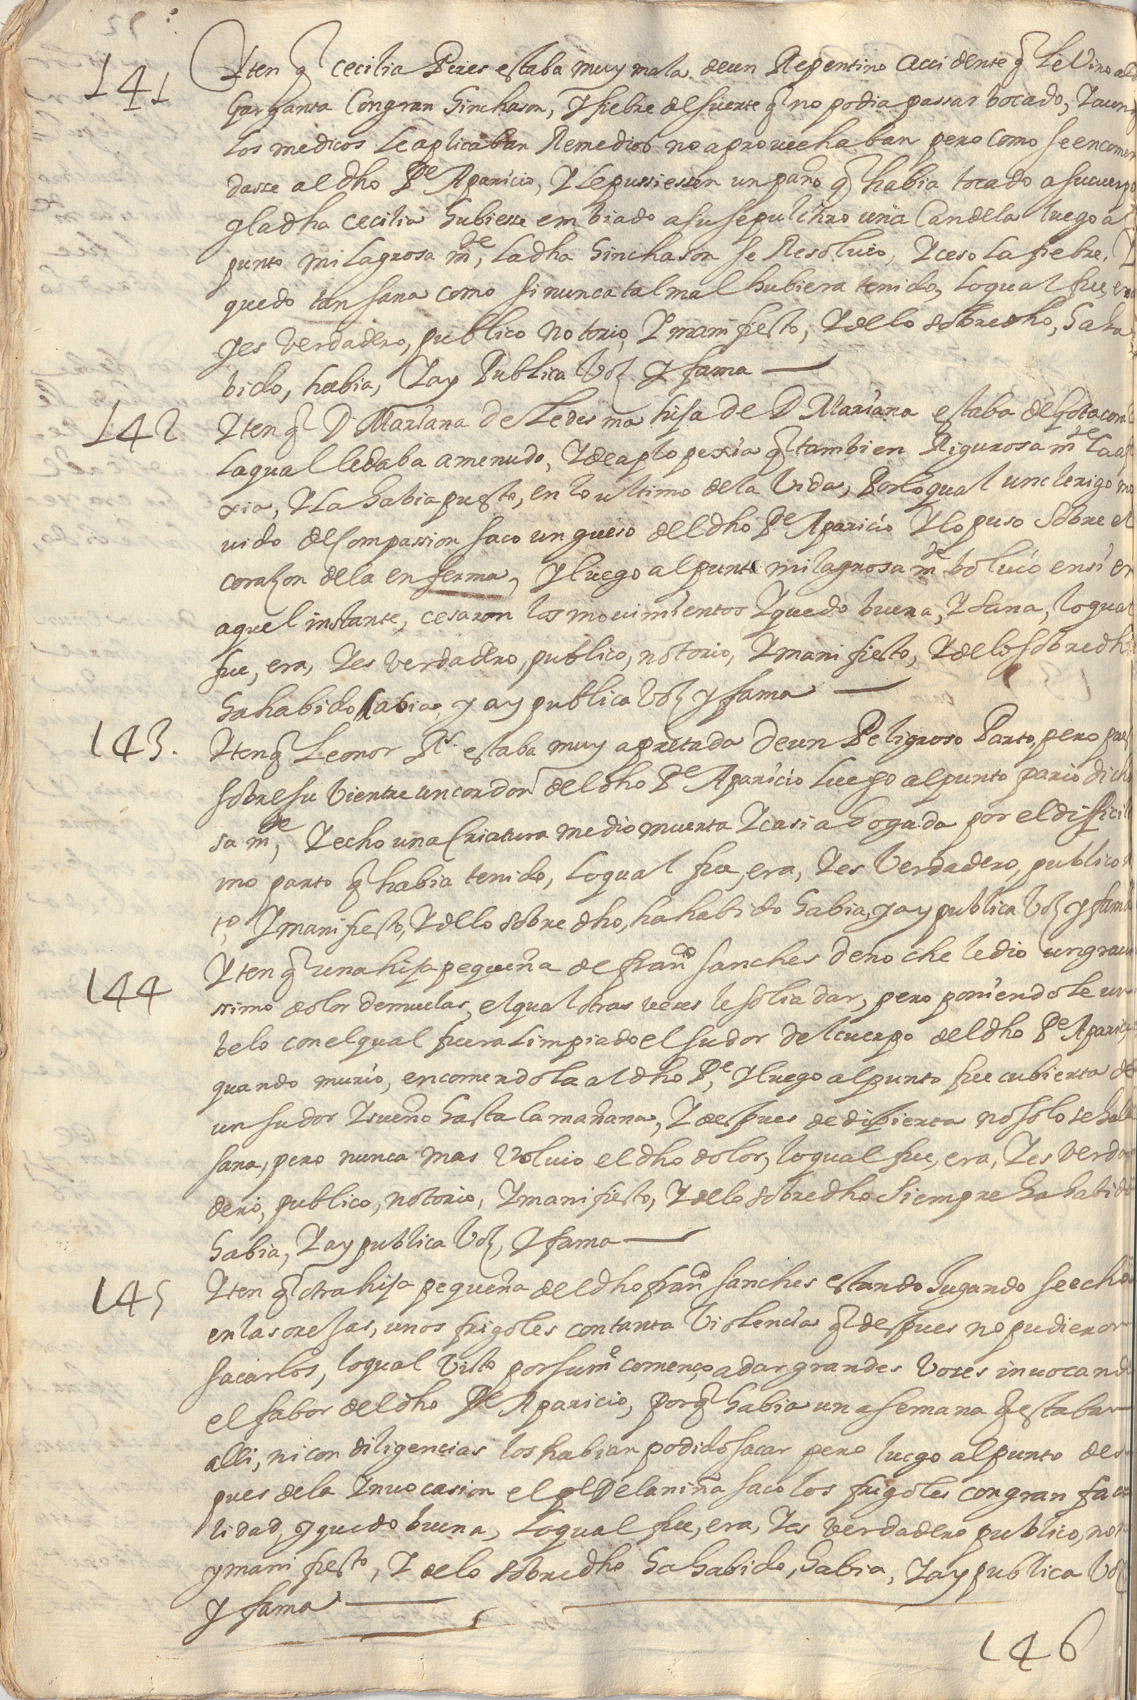 141 Yten q̃ cecilia Peres estaba muy mala de un Repentino accidente q̃ le Vino a la
garganta Con gran hinchason, y fiebre de suerte q̃ no podia passar bocado, Y aun q̃
los medicos le aplicaban Remedios no aprovechaban pero como se encomen
dasse al dho Pe Aparicio, Y le pussiessen un paño q̃ habia tocado a su cuerpo
y la dha cecilia hubiesse embiado a su sepulchro una Candela luego al
punto milagrosa mte, la dha hinchason se Resolvio, Y ceso la fiebre, Y
quedo tan sana como si nunca tal mal hubiera tenido, lo qual fue, era
y es verdadero, publico notorio, Y manifiesto, Y de lo sobredho, ha ha
bido, habia, Y ay Publica Voz Y fama
142 Yten q̃ Da Mariana de Ledesma hija de Da Mariana estaba de gota coral
la qual le daba a menudo, Y de aplopexia q̃ tambien Rigurosa mte la
xia, Y la habia puesto, en lo ultimo de la Vida, Por lo qual un clerigo mo
vido de Compassion saco un gueso del dho Pe Aparicio Y lo puso Sobre el
corazon de la enferma, Y luego al punto milagrosa mte bolvio en si en
aquel instante, cesaron los movimientos Y quedo buena, Y sana, lo qual
fue, era, Y es verdadero, publico, notorio, Y manifiesto, Y de lo sobredho
ha habido habia, y ay publica Voz y fama
143. Yten q̃ Leonor Rs. estaba muy apretada de un Peligroso Parto, pero pues
sobre su Vientre un cordon del dho Pe Aparicio Luego al punto pario dicho
sa mte, Y echo una Criatura medio muerta Y casi ahogada por el dificil
mo parto q̃ habia tenido, lo qual fue, era, Y es Verdadero, publico
ro, Y manifiesto, Y de lo sobre dho, ha habido habia, y ay publica Voz y fama
144 Yten q̃ una hija pequeña de franco sanches de noche le dio un gravi
ssimo dolor de muelas, el qual otras veces le solia dar, pero poniendole un
belo con el qual fuera Limpiado el sudor del cuerpo del dho Pe Aparicio,
quando murio, encomendola al dho Pe, Y luego al punto fue cubierta de
un sudor Y sueño hasta la mañana, Y despues de dispierta no solo se hallo
sana, pero nunca mas Volvio el dho dolor, lo qual fue, era, Y es verda
dero, publico, notorio, Y manifiesto, Y de lo sobredho Siempre ha habido
habia, Y ay publica Voz, Y fama
145 Yten q̃ otra hija pequeña del dho franco sanches estando Jugando se echo
en las orejas, unos frigoles con tanta Violencia q̃ despues no pudieron
sacarlos, lo qual Visto por su me començo a dar grandes Voces invocando
el fabor del dho Pe Aparicio, porq̃ habia una semana q̃ estaban
alli, ni con diligencias los habian podido sacar pero luego al punto des
pues de la Invocasion el pe De la niña saco los frigoles con gran faci
lidad, y quedo buena, Lo qual fue, era, Y es verdadero publico, noto
y manifiesto, Y de lo sobredho ha habido, habia, Y ay publica Voz
Y fama
146